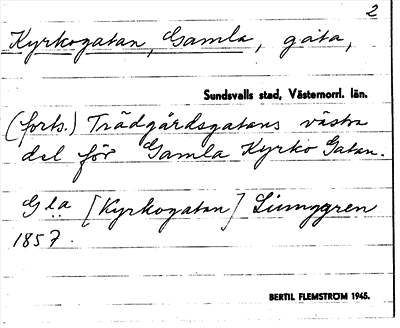 2
Kyrkogatan, Gamla, gata,
Sundsvalls stad, Västernorrl. län.
(forts.) Trädgårdsgatans västra
del för Gamla Kyrko Gatan.
Gla [Kyrkogatan] Ljunggren
1857.
BERTIL FLEMSTRÖM 1945.